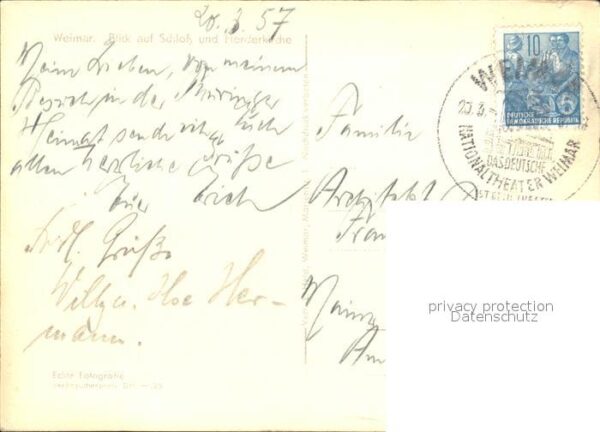 20.3.57
Weimar. Blick auf Schloß und Herderkirche
Meine Lieben, von meinem
Besuch in der Thüringer
Heimat sende ich Euch
allen herzliche Grüße
Euer Erich
Frdl. Grüße
Willy u. Ilse Her-
mann.
Echte Fotografie
Familie
Architekt
Fran
Mainz
Am
10
DEUTSCHE
DEMOKRATISCHE REPUBLIK
WEIMAR
20.3.
DAS DEUTSCHE
NATIONALTHEATER WEIMAR
privacy protection
Datenschutz